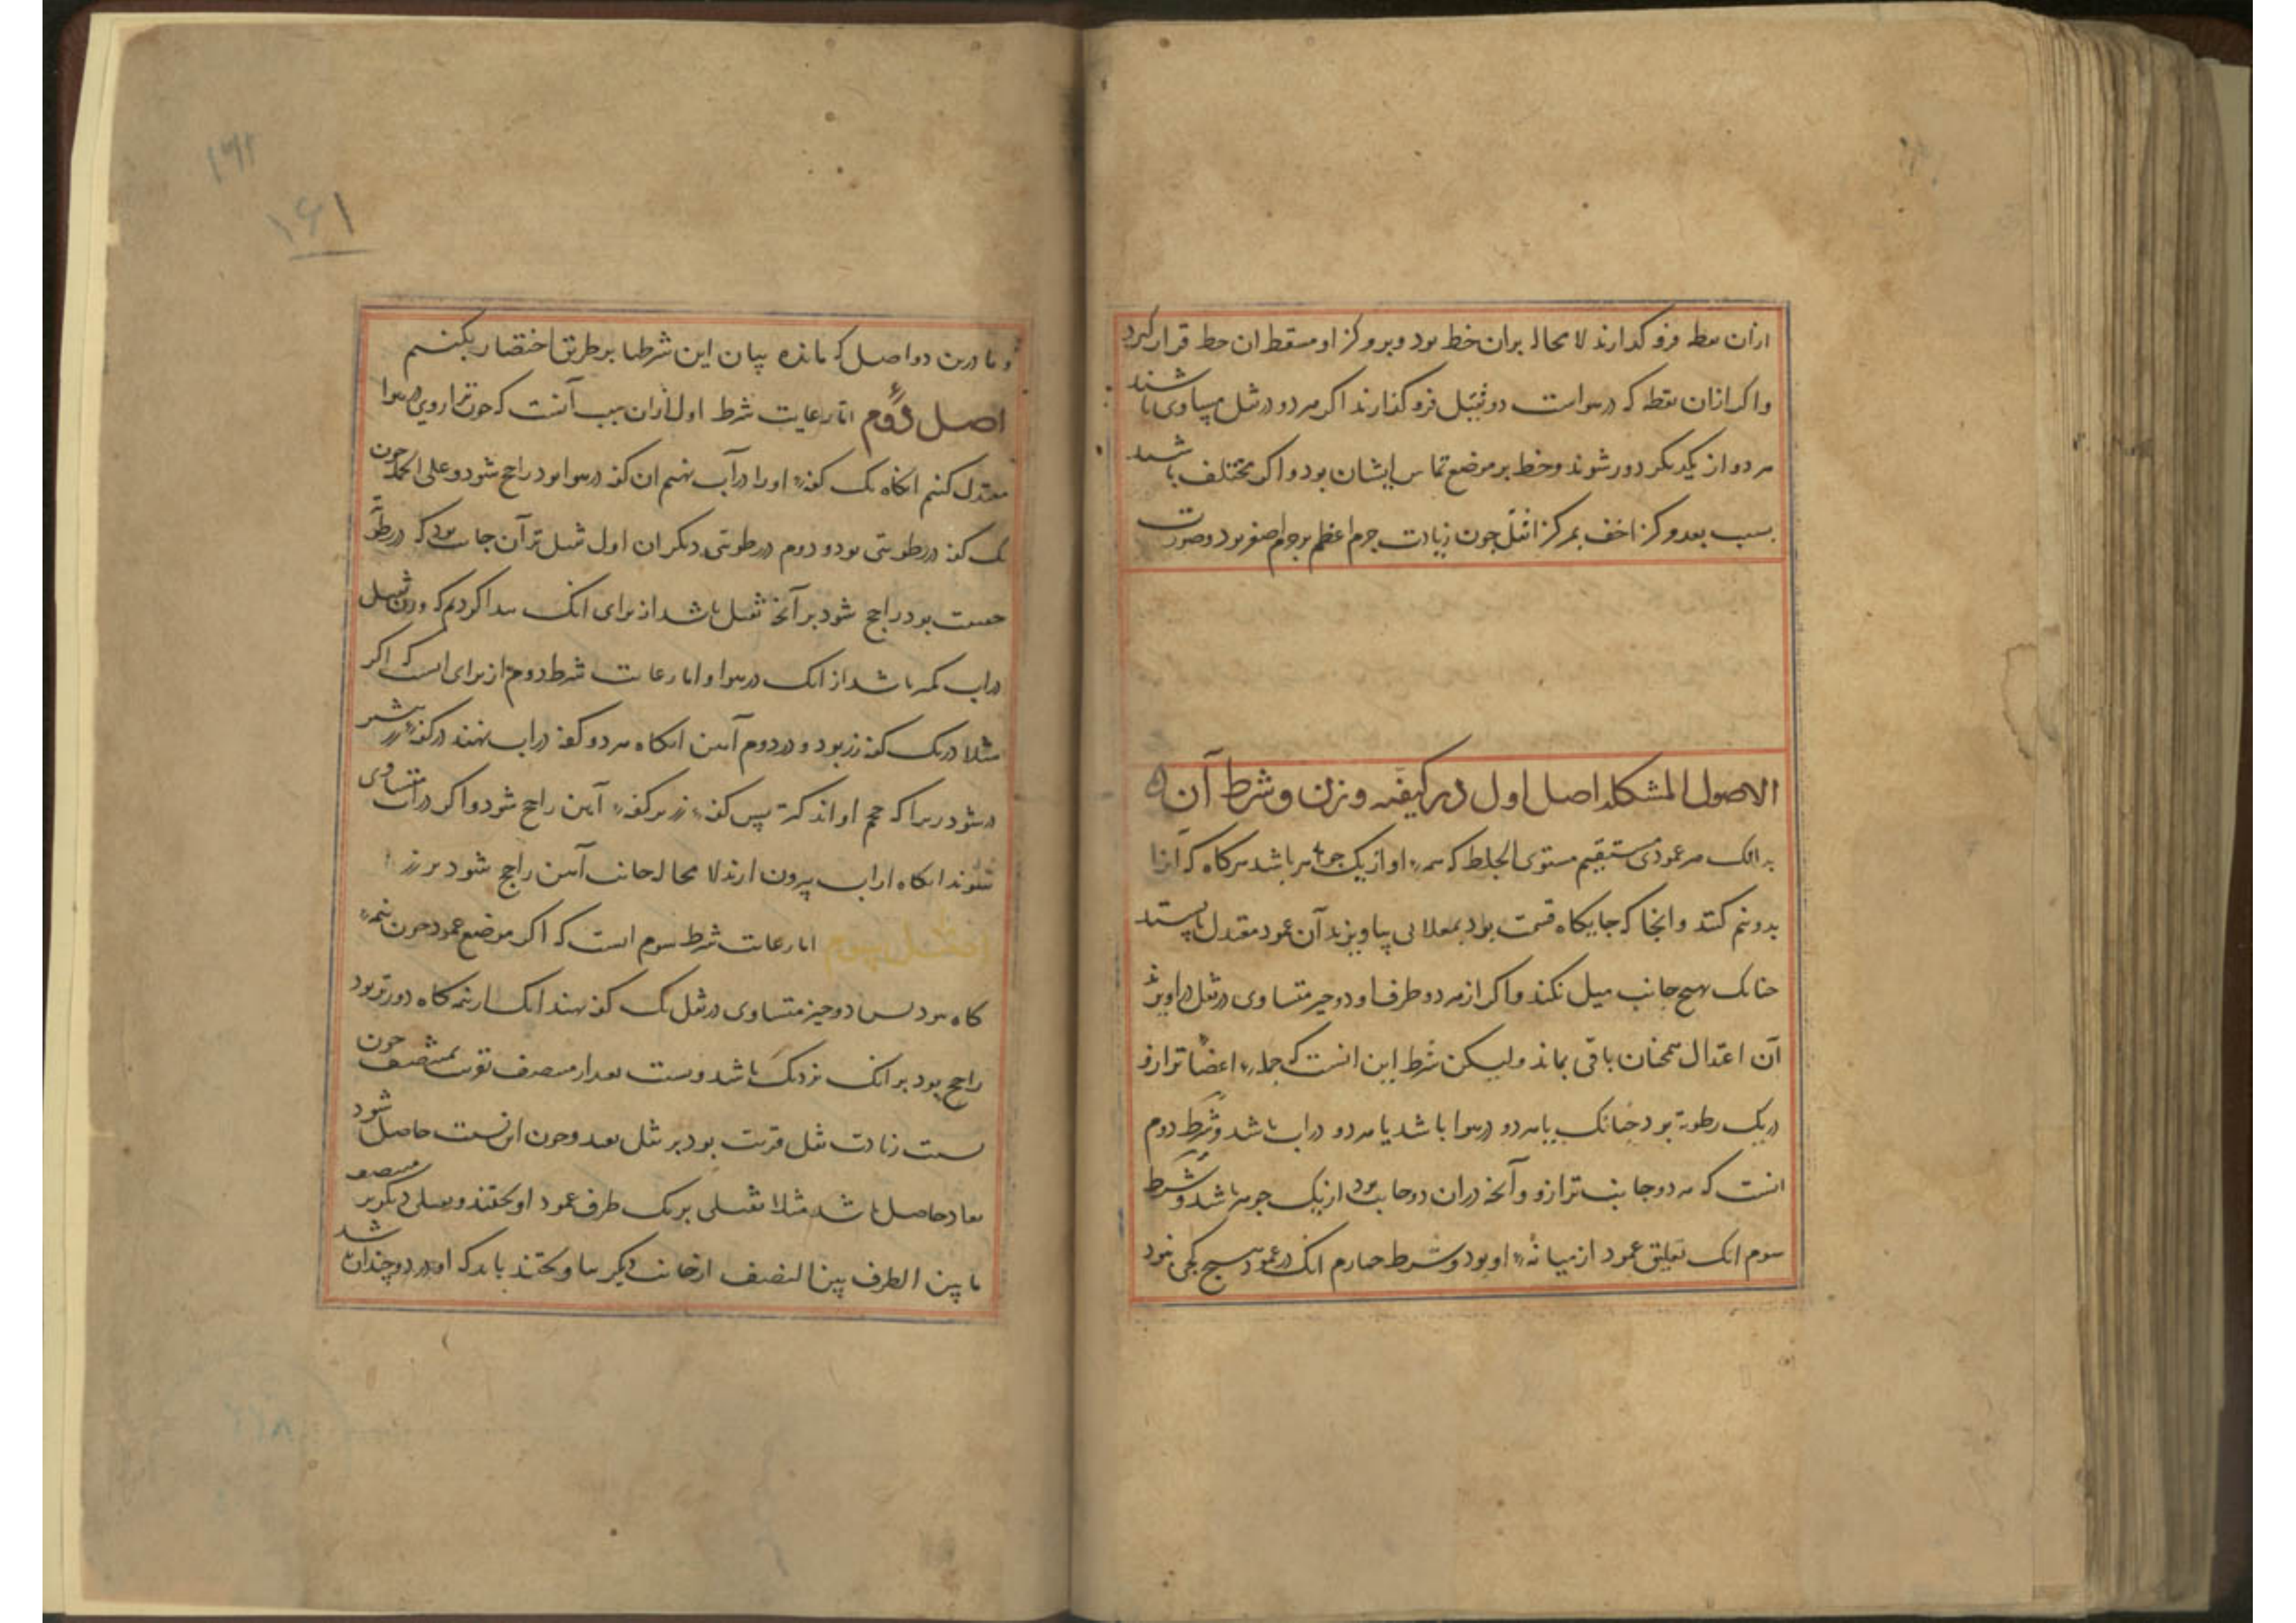 ازان نقطه فرو گذارند لا محاله بران خط بود و بروکز او مسقط ان خط قرار گیرد
واکر ازان نقطه که در هواست دو ثقیل فرو گذارند اکر هر دو در ثقل مساوی باشند
هر دو از یکدیکر دور شوند و خط بر موضع تماس ایشان بود و اکر مختلف باشند
بسبب بعد مرکز اخف بمرکز اثقل چون زیادت جرم اعظم بر جرم اصغر بود و صورت
الاصول المشکله اصل اول در کیفیه وزن و شرط آن
بدانک هر عمودی مستقیم مستوی الغلظ که همهٔ او از یک جوهر باشد هرکاه که آنرا
بدو نیم کنند و انجا که جایکاه قسمت بود بمعلاقی بیاویزند آن عمود معتدل بایستد
چنانک بهیچ جانب میل نکند و اکر از هر دو طرف او دو چیز متساوی در ثقل دراویزند
آن اعتدال همچنان باقی بماند ولیکن شرط این انست که جملهٔ اعضا ترازو
در یک رطوبة بود چنانک یا هر دو در هوا باشد یا هر دو در اب باشد و شرط دوم
انست که هر دو جانب ترازو و آنچه دران دو جانب بود از یک جوهر باشد و شرط
سوم انک تعلیق عمود از میانهٔ او بود و شرط چهارم انک در عمود هیچ کجی نبود
و ما درین دو اصل که مانده بیان این شرطها بر طریق اختصار بکنیم
اصل دوم اما رعایت شرط اول ازان سبب آنست که چون ترازوی در هوا
معتدل کنیم انکاه یک کفهٔ او را در آب نهیم ان کفه در هوا بود راجح شود و علی الجمله چون
یک کفه در رطوبتی بود و دوم در رطوبتی دیکر ان اول ثقیل تر آن جانب بود که در رطوبت
خفیف بود راجح شود بر آنچه ثقیل باشد از برای انک پیدا کردیم که وزن ثقیل
در اب کمتر باشد از انک در هوا و اما رعایت شرط دوم از برای انست که اکر
مثلا در یک کفه زر بود و در دوم آهن انکاه هر دو کفه در اب نهند در کفهٔ زر بیشتر
در شود زیرا که حجم او اندکتر پس کفهٔ زر بر کفهٔ آهن راجح شود و اکر در اب متساوی
شوند انکاه از اب بیرون ارند لا محاله جانب آهن راجح شود بر زر
اصل سوم اما رعایت شرط سوم انست که اکر موضع عمود چون نیمه
کاه بود پس دو چیز متساوی در ثقل یک کفه نهند انک از نیمه کاه دورتر بود
راجح بود بر انک نزدیک باشد و نسبت بعد از منصف قوت بمنصف چون
نسبت زیادت ثقل قریب بود بر ثقل بعید و چون این نسبت حاصل شود
تعادل حاصل باشد مثلا ثقیلی بر یک طرف عمود اویختند و ثقیلی دیکر بر منصف
ما بین الطرف بین النصف از جانب دیکر بیاویختند باید که او در دو چندان باشد
۱۶۱
۱۶۱